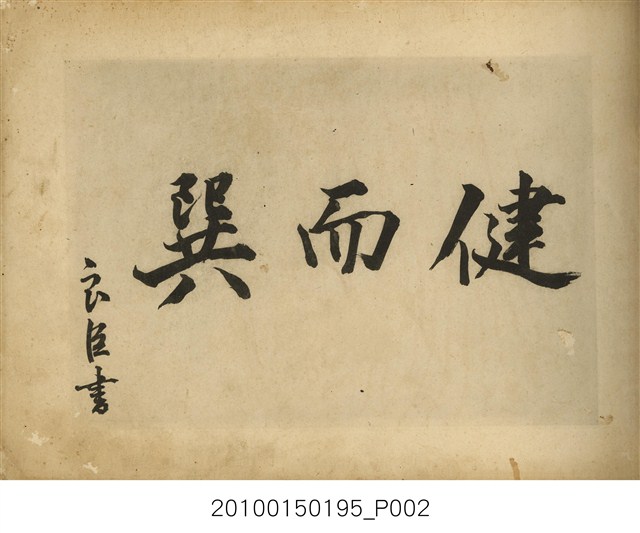 健而巽
良臣書
20100150195_P002